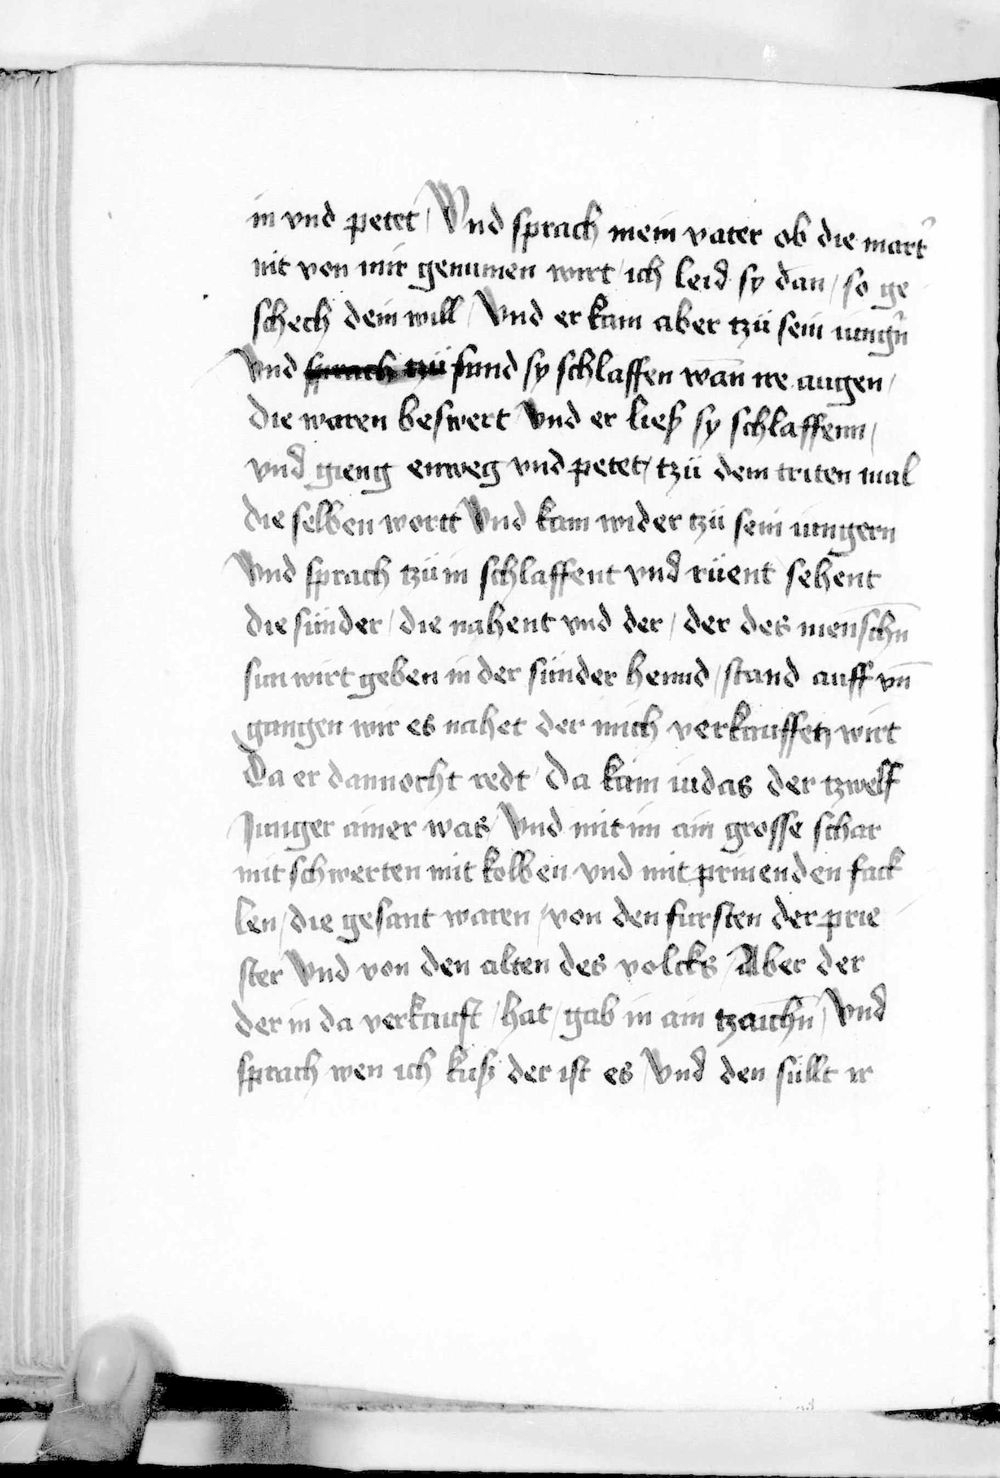 in vnd petet / Vnd sprach mein vater ob die mart̉
nit von mir genumen wirt / ich leid sy dan / so ge
schech dein will / Vnd er kam aber tzü sein iungn̉
Vnd sprach tzü fund sy schlaffen wān ire augen /
die waren beswert Vnd er ließ sy schlaffenn /
vnd gieng enweg vnd petet / tzü dem triten mal
die selben wortt Vnd kam wider tzü sein iungern
Vnd sprach tzü in schlaffent vnd rüent sehent
die sünder / die nahent vnd der / der des menschn̄
sun wirt geben in der sünder hennd / stand auff vn̄
gangen wir es nahet der mich verkauffen wirt
Da er dannocht redt / da kam iudas der tzwelf
Junger ainer was / Vnd mit im ain grosse schar
mit schwerten mit kolben vnd mit prinenden fack
len / die gesant waren / von den fursten der prie
ster Vnd von den alten des volcks / Aber der
der in da verkauft / hat / gab in ain tzaichn̄ / Vnd
sprach wen ich kuß der ist es / Vnd den süllt ir